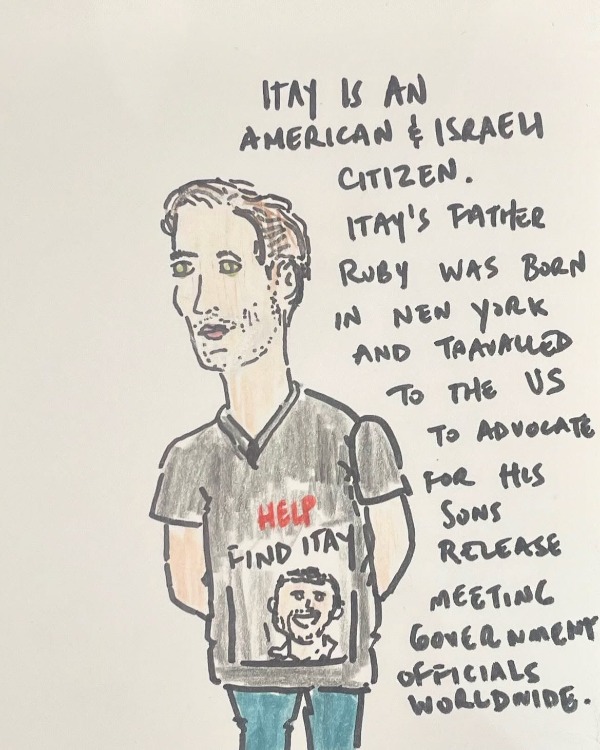 ITAY IS AN
AMERICAN & ISRAELI
CITIZEN.
ITAY'S FATHER
RUBY WAS BORN
IN NEW YORK
AND TRAVALLED
TO THE US
TO ADVOCATE
FOR HIS
SONS
RELEASE
MEETING
GOVERNMENT
OFFICIALS
WORLDWIDE.
HELP
FIND ITAY